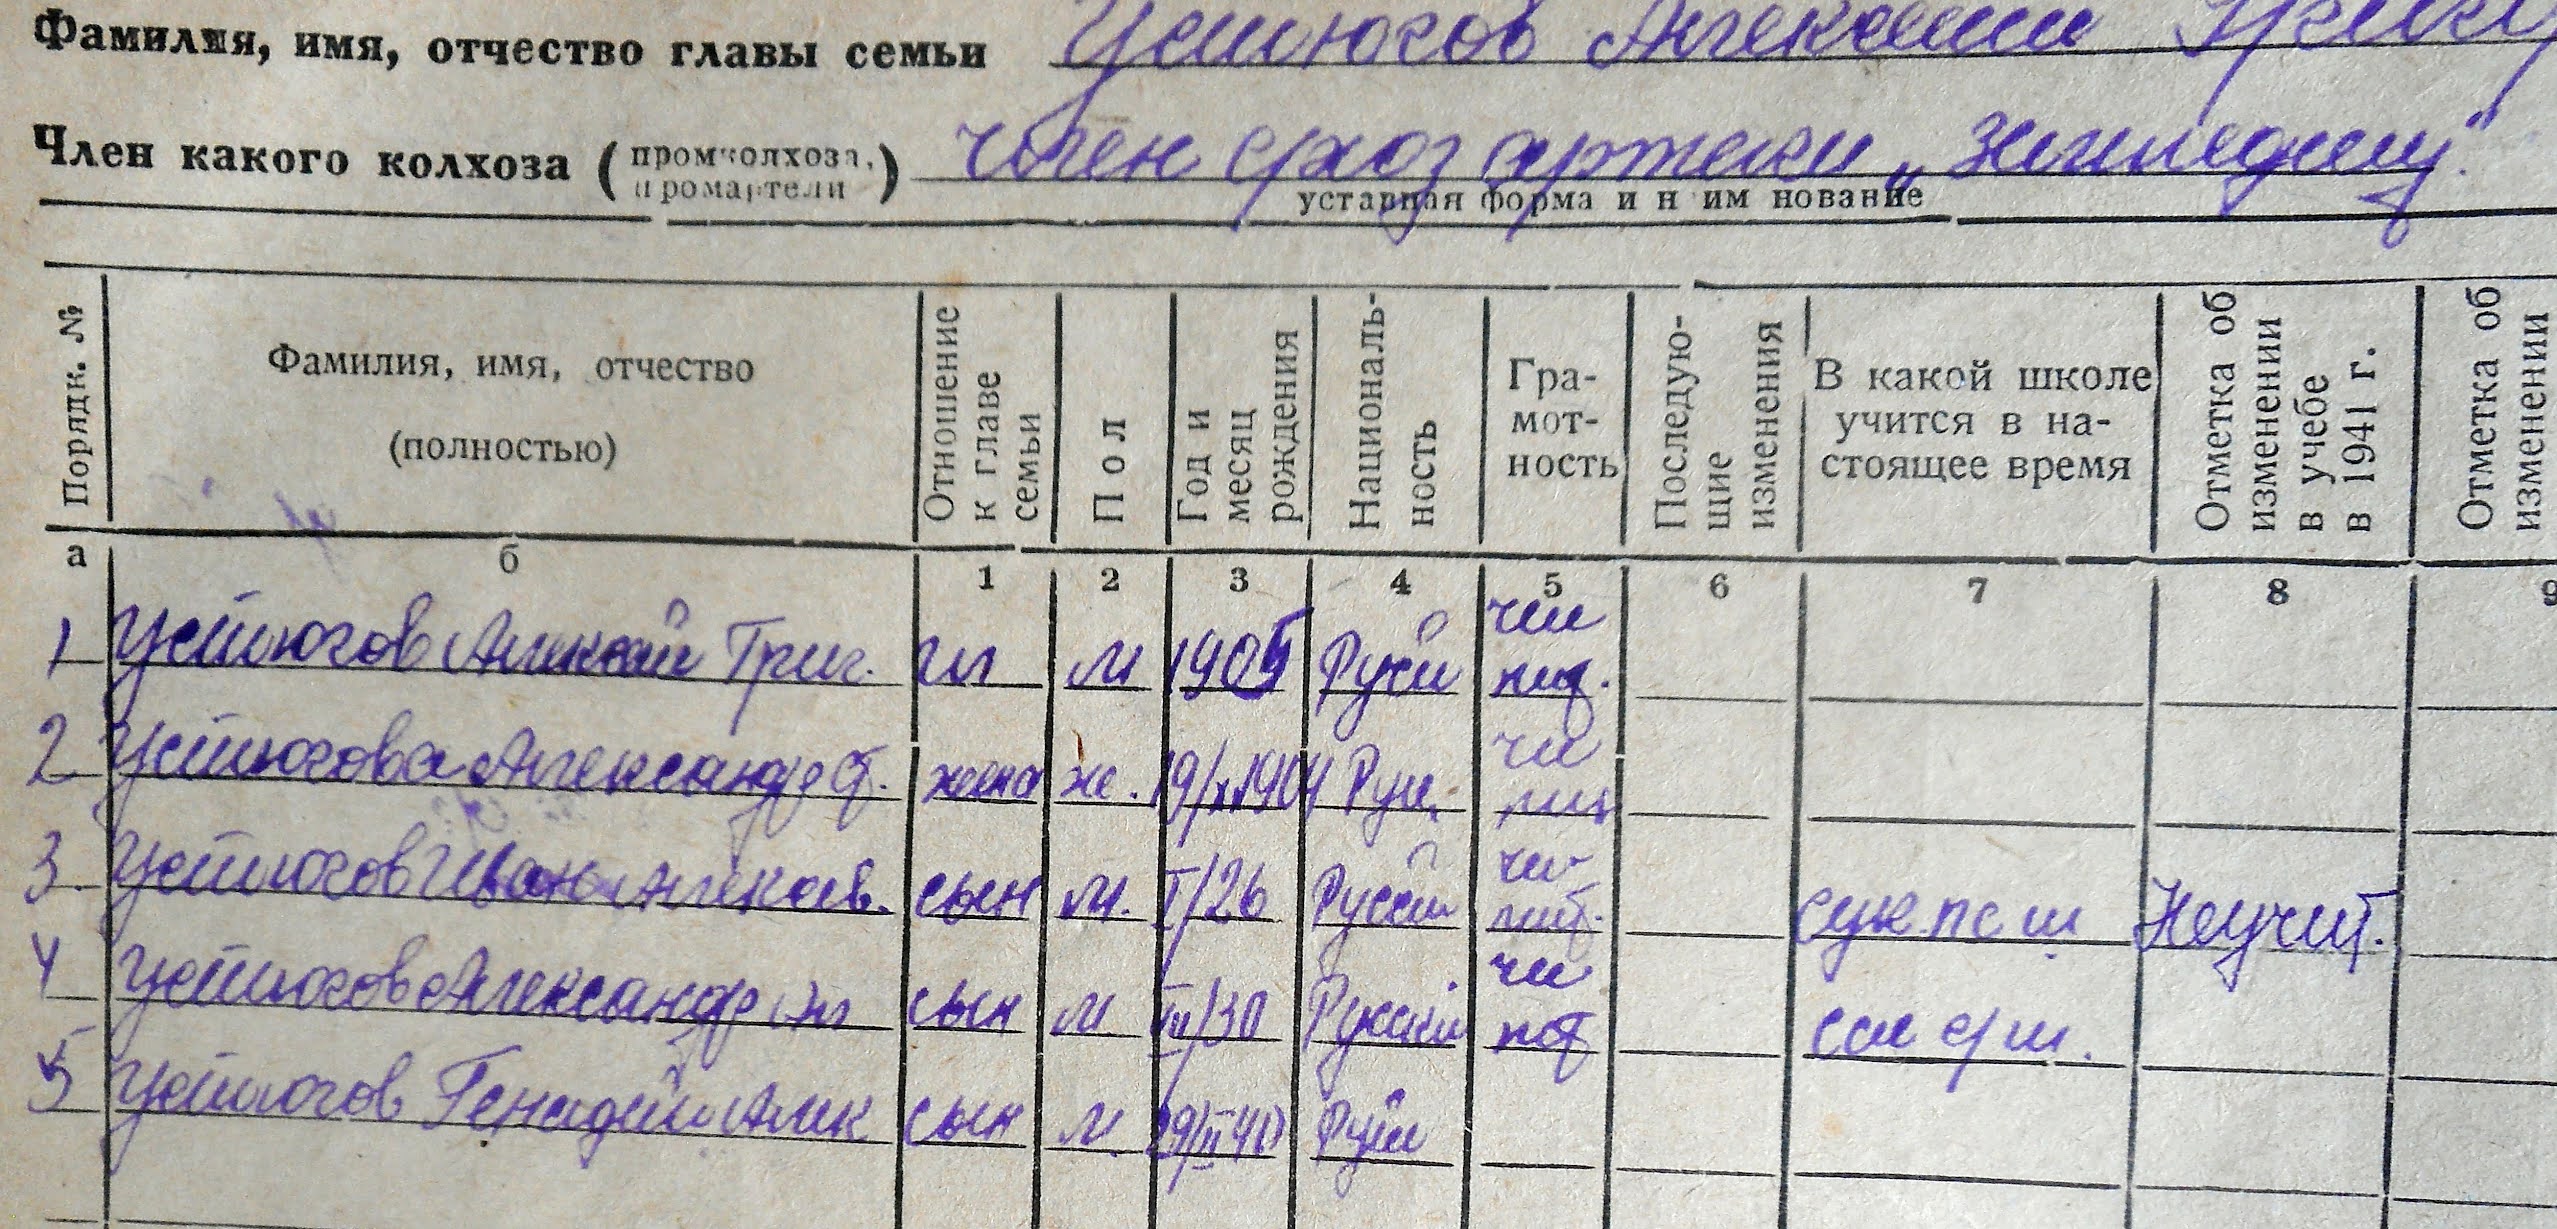 Фамилия, имя, отчество главы семьи Устюгов Алексей Григ
Член какого колхоза (промколхоза, промартели) член с/хоз артели „
уставная форма и н им нование
Порядк. №
Фамилия, имя, отчество (полностью)
Отношение к главе семьи
Пол
Год и месяц рождения
Националь-ность
Гра-мот-ность
Последую-щие изменения
В какой школе учится в на-стоящее время
Отметка об изменении в учебе в 1941 г.
Отметка об изменении
а б 1 2 3 4 5 6 7 8 9
1 Устюгов Алексей Григ. гл м 1905 Русй
2 Устюгова Александр Ф. жена ж. 19/X 1904 Рус.
3. Устюгов Иван Алексеев. сын м. I/26 Русский Неучит.
4 Устюгов Александр Ал сын м /30 Русский
5 Устюгов Генадий Алек сын м. 19/III 40 Русй